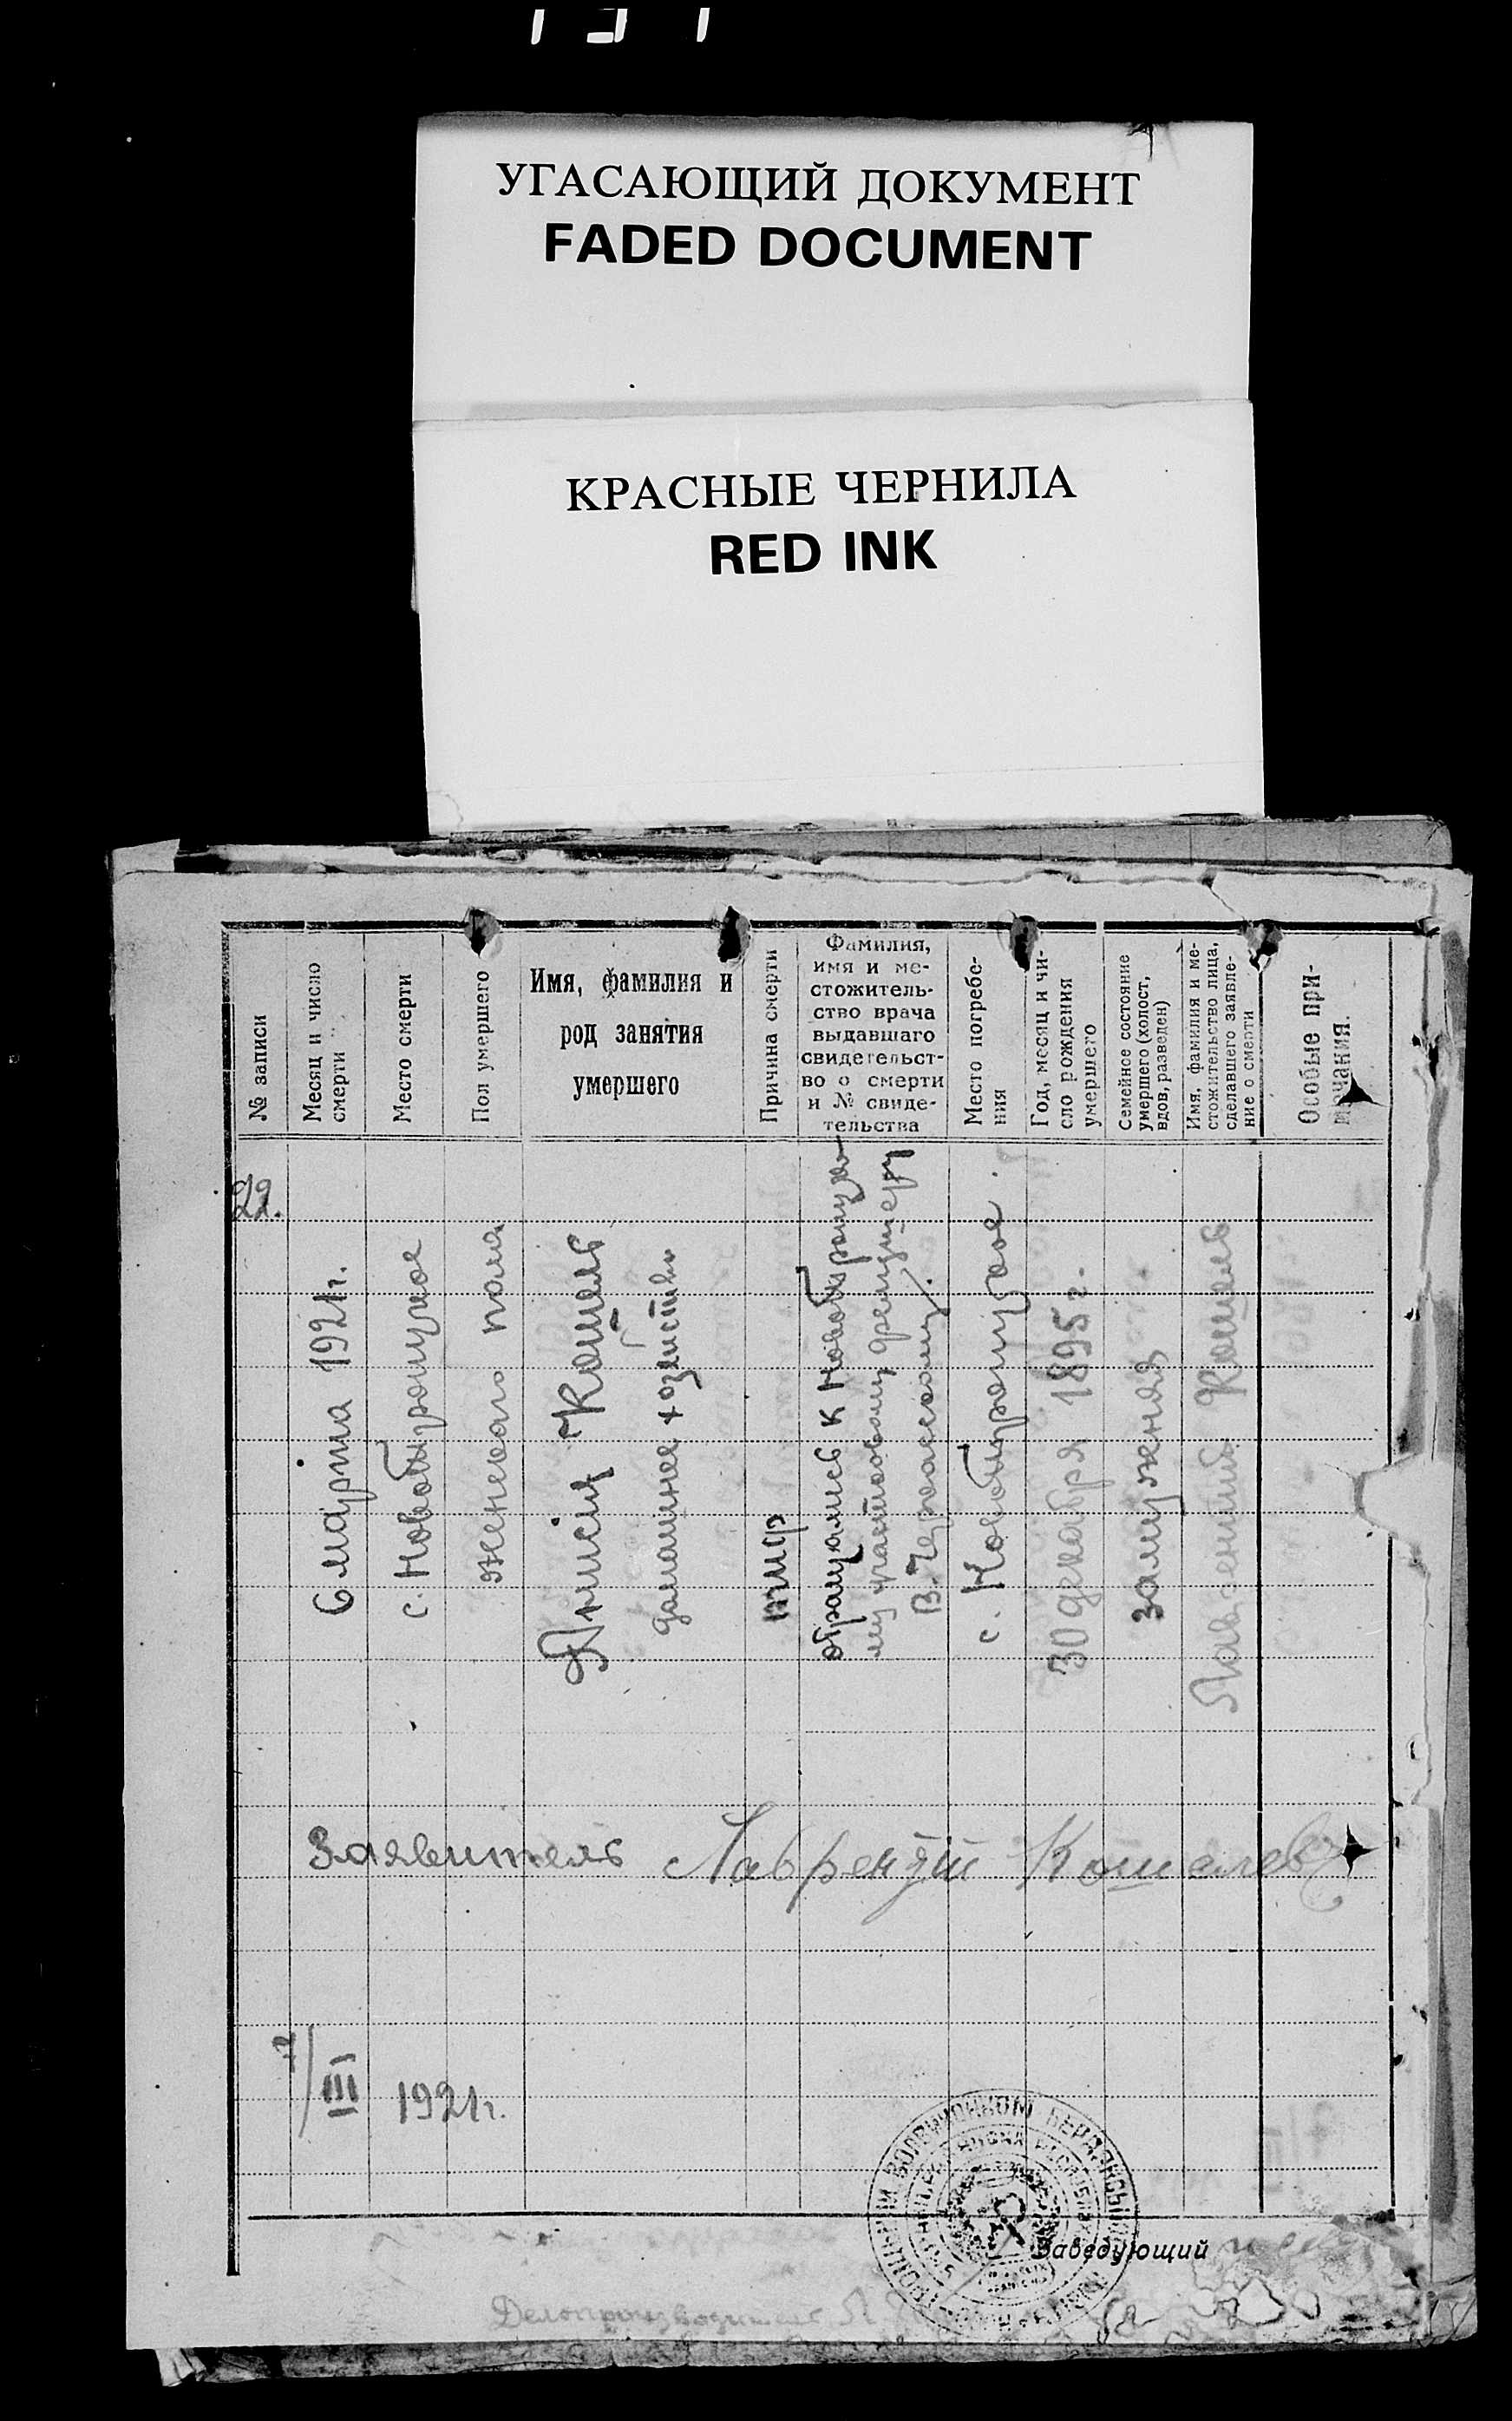 УГАСАЮЩИЙ ДОКУМЕНТ
FADED DOCUMENT
КРАСНЫЕ ЧЕРНИЛА
RED INK
№ записи
Месяц и число
смерти
Место смерти
Пол умершего
Имя, фамилия и
род занятия
умершего
Причина смерти
Фамилия,
имя и ме-
стожитель-
ство врача
выдавшаго
свидетельст-
во о смерти
и № свиде-
тельства
Место погребе-
ния
Год, месяц и чи-
сло рождения
умершего
Семейное состояние
умершего (холост,
вдов, разведен)
Имя, фамилия и ме-
стожительство лица,
сделавшего заявле-
ние о смерти
Особые при-
мечания.
22.
6 марта 1921 г.
с. Новотроицкое
женскаго пола
Анисия Кошель
домашнее хозяйство
тиф
обращались к Новотроицко-
му участковому фельдшеру
В. Черкасскому.
с. Новотроицкое.
30 декабря 1895 г.
замужняя
Лаврентий Кошель
Заявитель Лаврентий Кошелев
7/III 1921 г.
Заведующий
Делопроизводитель